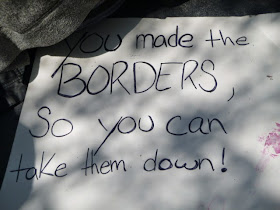 you made the
BORDERS,
So you can
take them down!